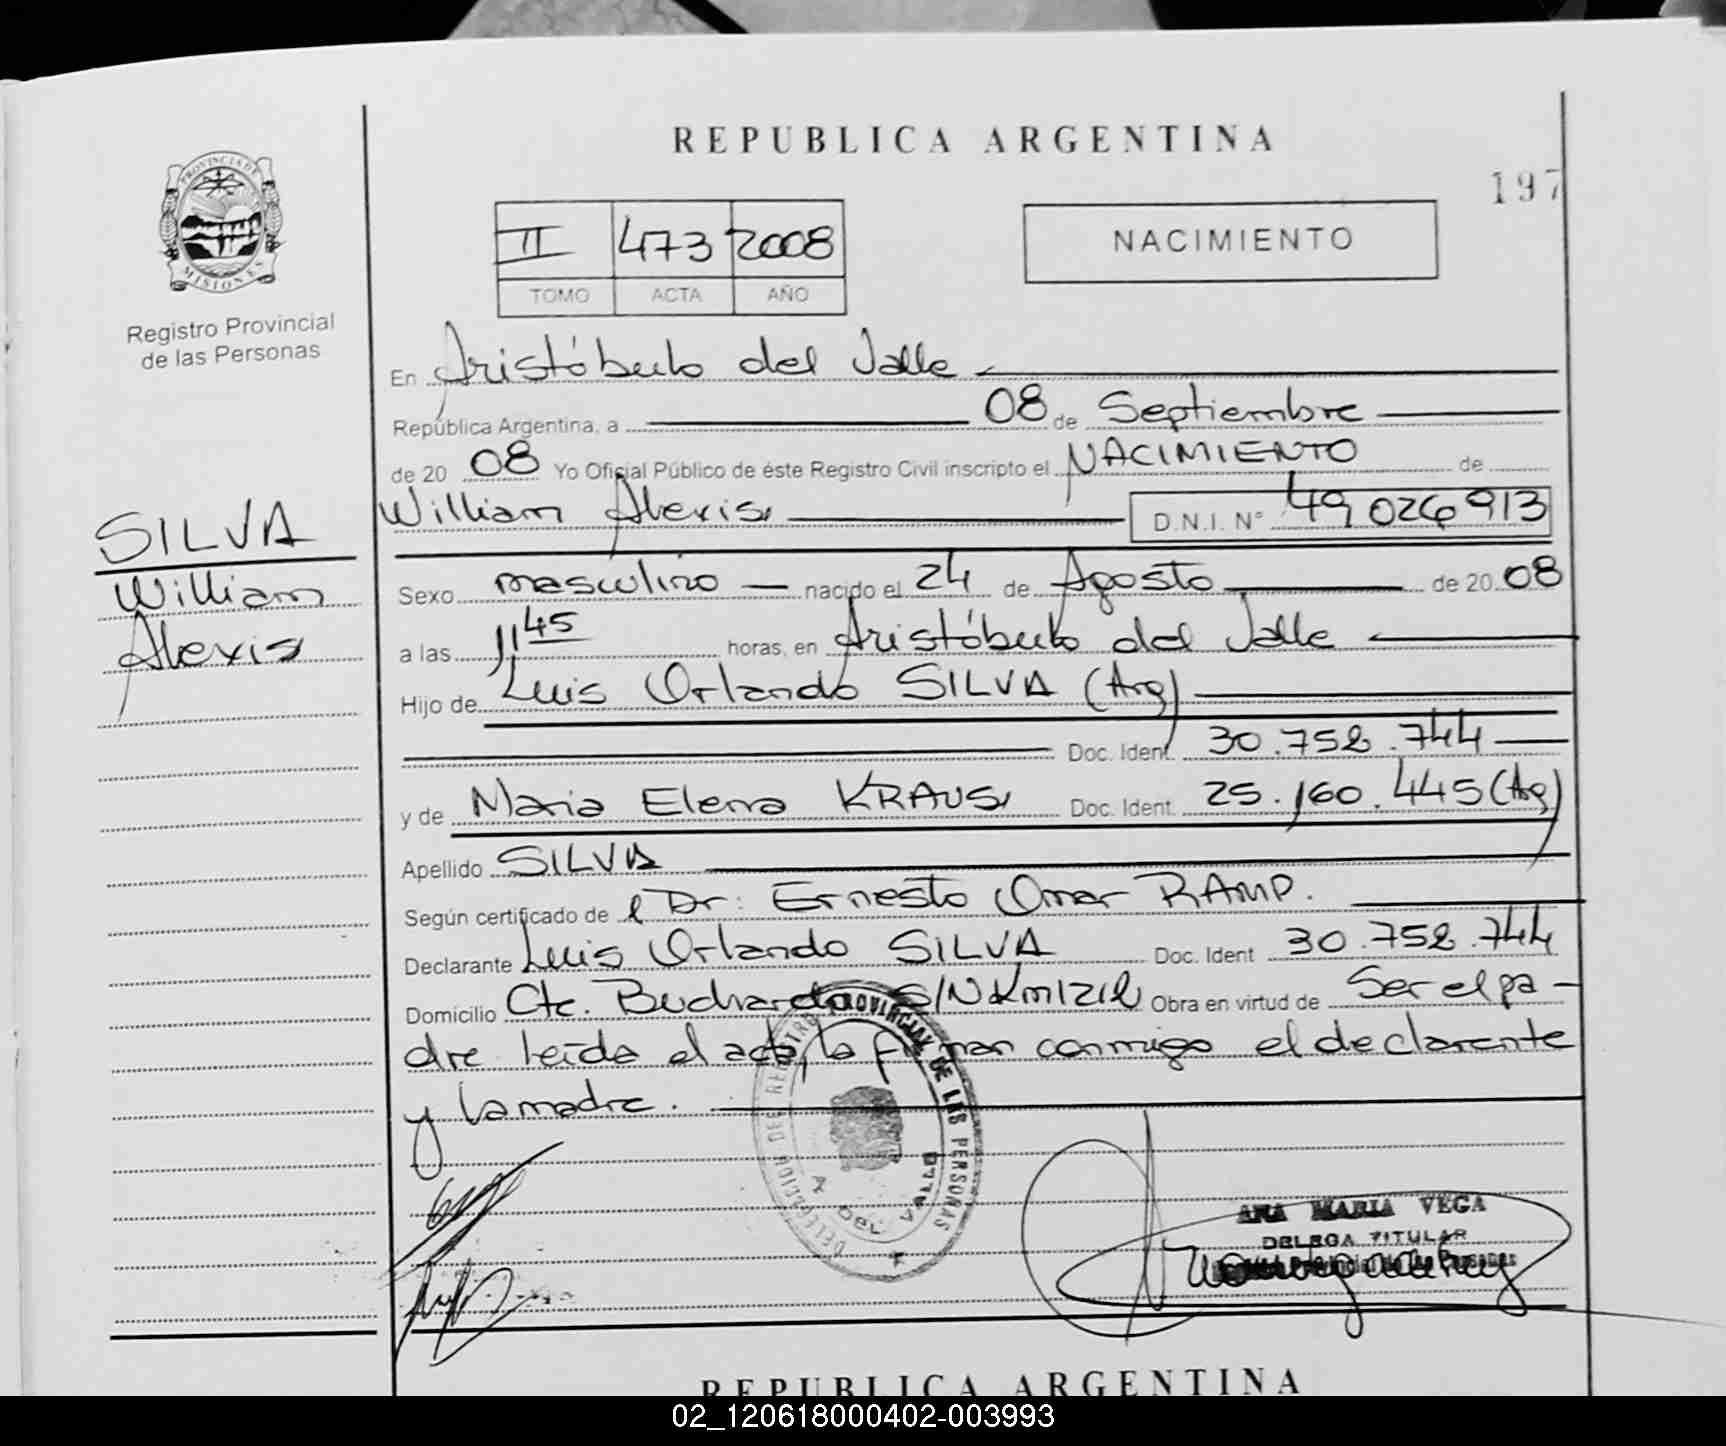 REPUBLICA ARGENTINA
197
PROVINCIA DE
MISIONES
Registro Provincial
de las Personas
II 473 2008
TOMO ACTA AÑO
NACIMIENTO
En Aristóbulo del Valle
República Argentina, a 08 de Septiembre
de 20 08 Yo Oficial Público de éste Registro Civil inscripto el NACIMIENTO de
William Alexis D.N.I. Nº 49026913
SILVA
William
Alexis
Sexo masculino nacido el 24 de Agosto de 20 08
a las 11 45 horas, en Aristóbulo del Valle
Hijo de Luis Orlando SILVA (Arg)
Doc. Ident. 30.758.744
y de Maria Elena KRAUS Doc. Ident. 25.160.445 (Arg)
Apellido SILVA
Según certificado de el Dr: Ernesto Omar RAMP.
Declarante Luis Orlando SILVA Doc. Ident 30.758.744
Domicilio Cte. Buchardo S/N Km Obra en virtud de Ser el pa-
dre leída el acta, la firman conmigo el declarante
y la madre.
DELEGACION DEL REGISTRO PROVINCIAL DE LAS PERSONAS
A. DEL V
ANA MARIA VEGA
DELEGA TITULAR
Provincial de las Personas
REPUBLICA ARGENTINA
02_120618000402-003993